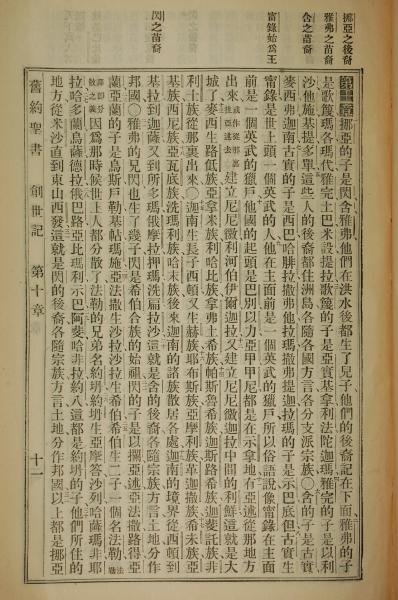 挪亞之後裔
雅弗之苗裔
含之苗裔
甯錄始爲王
閃之苗裔
第十章挪亞的子是閃含雅弗他們在洪水後都生了兒子他們的後裔記在下面雅弗的子
是歌篾瑪各瑪代雅完土巴米設提拉歌篾的子是亞實基拿利法陀迦瑪雅完的子是以利
沙他施基提多單這些人的後裔都住洲島各隨各國方言各分支派宗族〇含的子是古實
麥西弗迦南古實的子是西巴哈腓拉撒弗他拉瑪撒弗提迦拉瑪的子是示巴底但古實生
甯錄是世上頭一個英武的人他在主面前是一個英武的獵戶所以俗語說像甯錄在主面
前是一個英武的獵戶他國的起頭是巴別以力亞甲甲尼都是在示拿地有亞述從那地方
出來或作從那裏往亞述去建立尼尼微利河伯伊爾迦拉又建立尼尼微迦拉中間的利鮮這就是大
城了麥西生路低族亞拿米族利哈比族拿弗土希族帕斯魯希族迦斯路希族迦斐託族非
利士族從那裏出來〇迦南生長子西頓又生赫族耶布斯族亞摩利族革迦撒族希未族亞
基族西尼族亞瓦底族洗瑪利族哈末族後來迦南的諸族散居各處迦南的境界從西頓到
基拉到迦薩又到所多瑪俄摩拉押瑪洗扁拉沙這就是含的後裔各隨宗族方言土地分作
邦國〇雅弗的兄閃也生了幾子閃是希伯合族的始祖閃的子是以攔亞述亞法撒路得亞
蘭亞蘭的子是烏斯戶勒基帖瑪施亞法撒生沙拉沙拉生希伯希伯生二子一個名法勒法勒
譯即分散之義因爲那時候世上人都分散了法勒的兄弟名約坍約坍生亞摩答沙列哈薩瑪非耶
拉哈多蘭烏薩德拉俄巴路亞比瑪利示巴阿斐哈非拉約八這都是約坍的子他們所住的
地方從米沙直到東山西發這就是閃的後裔各隨宗族方言土地分作邦國以上都是挪亞
舊約聖書 創世記 第十章 十二